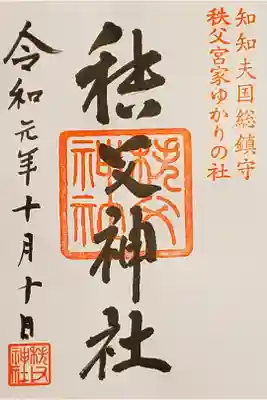 知知夫国総鎮守
秩父宮家ゆかりの社
秩父神社
秩父
神社
令和元年十月十日
秩父
神社